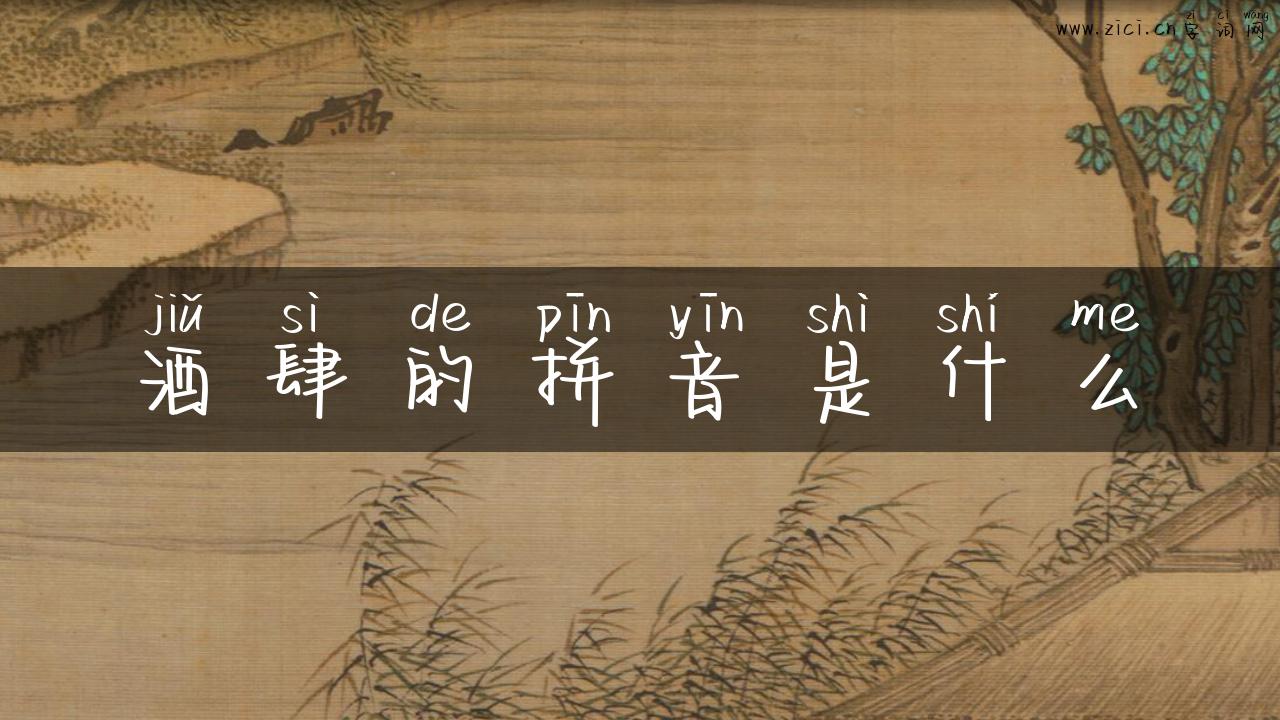 zì cí wǎng
www.zici.cn字词网
jiǔ sì de pīn yīn shì shí me
酒肆的拼音是什么